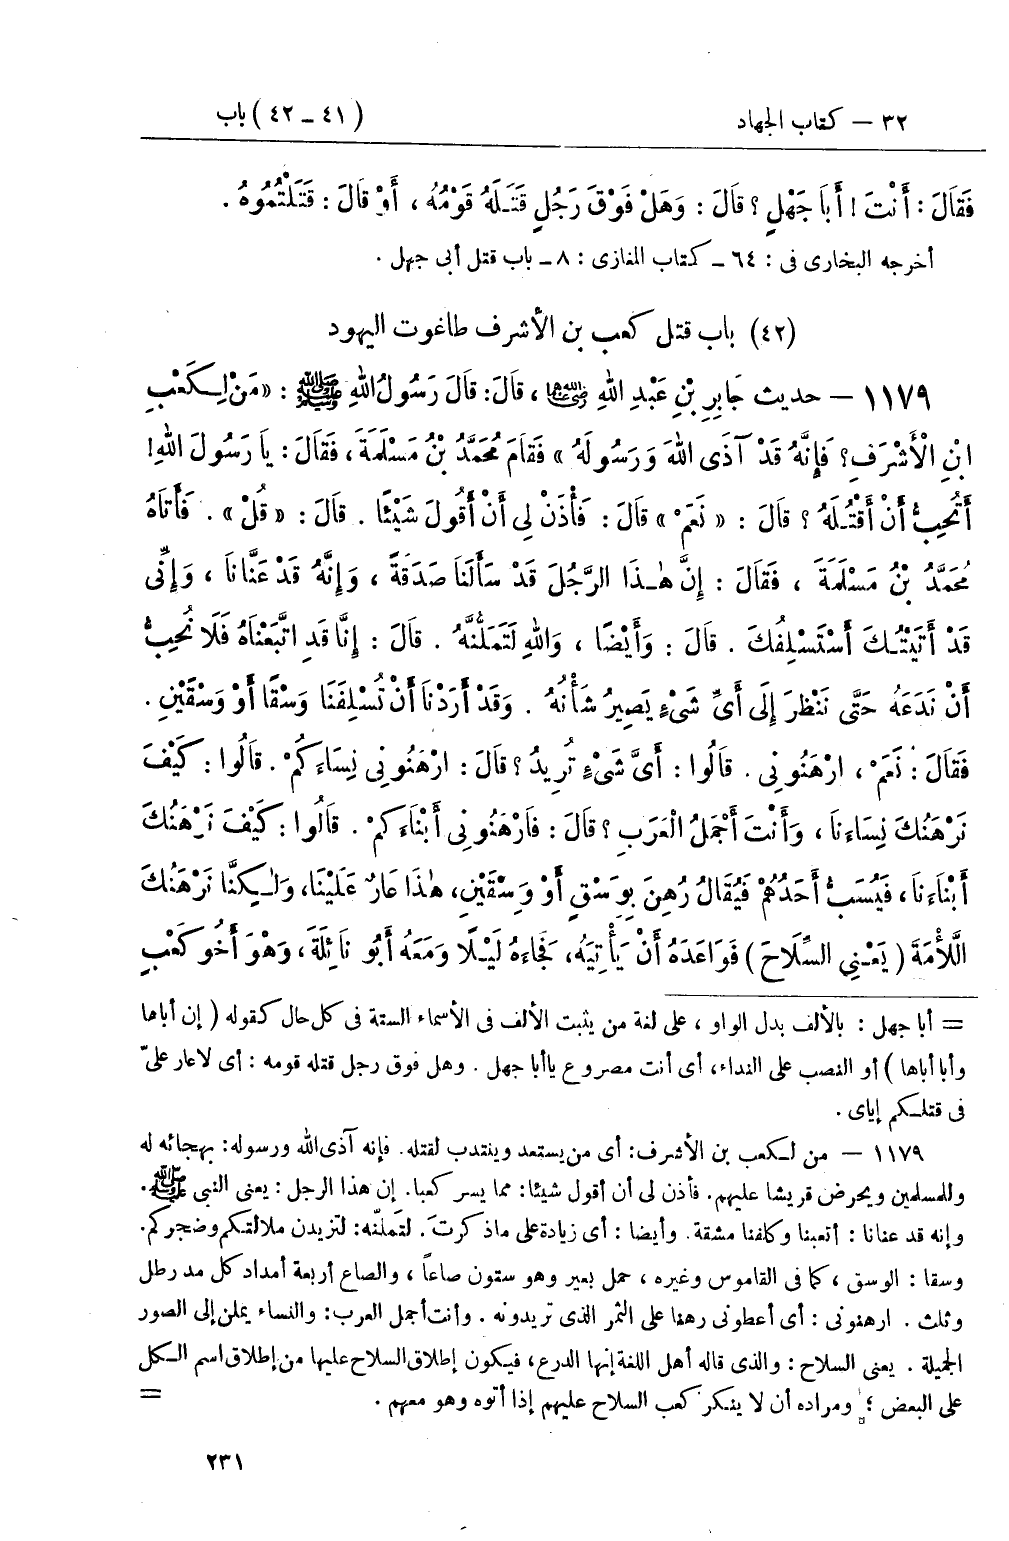 ٣٢ – كتاب الجهاد (٤١ – ٤٢) باب
فَقَالَ : أَنْتَ ! أَبَا جَهْلٍ ؟ قَالَ : وَهَلْ فَوْقَ رَجُلٍ قَتَلَهُ قَوْمُهُ ، أَوْ قَالَ : قَتَلْتُمُوهُ .
أخرجه البخارى فى : ٦٤ – كتاب المغازى : ٨ – باب قتل أبى جهل .
(٤٢) باب قتل كعب بن الأشرف طاغوت اليهود
١١٧٩ – حديث جَابِرِ بْنِ عَبْدِ اللهِ رضي الله عنهما ، قَالَ : قَالَ رَسُولُ اللهِ ﷺ : « مَنْ لِكَعْبِ
ابْنِ الْأَشْرَفِ ؟ فَإِنَّهُ قَدْ آذَى اللهَ وَرَسُولَهُ » فَقَامَ مُحَمَّدُ بْنُ مَسْلَمَةَ ، فَقَالَ : يَا رَسُولَ اللهِ !
أَتُحِبُّ أَنْ أَقْتُلَهُ ؟ قَالَ : « نَعَمْ » قَالَ : فَأْذَنْ لِى أَنْ أَقُولَ شَيْئًا . قَالَ : « قُلْ » . فَأَتَاهُ
مُحَمَّدُ بْنُ مَسْلَمَةَ ، فَقَالَ : إِنَّ هٰذَا الرَّجُلَ قَدْ سَأَلَنَا صَدَقَةً ، وَإِنَّهُ قَدْ عَنَّانَا ، وَإِنِّى
قَدْ أَتَيْتُكَ أَسْتَسْلِفُكَ . قَالَ : وَأَيْضًا ، وَاللهِ لَتَمَلُّنَّهُ . قَالَ : إِنَّا قَدِ اتَّبَعْنَاهُ فَلَا نُحِبُّ
أَنْ نَدَعَهُ حَتَّى نَنْظُرَ إِلَى أَىِّ شَىْءٍ يَصِيرُ شَأْنُهُ . وَقَدْ أَرَدْنَا أَنْ تُسْلِفَنَا وَسْقًا أَوْ وَسْقَيْنِ .
فَقَالَ : نَعَمْ ، ارْهَنُونِى . قَالُوا : أَىَّ شَىْءٍ تُرِيدُ ؟ قَالَ : ارْهَنُونِى نِسَاءَكُمْ . قَالُوا : كَيْفَ
نَرْهَنُكَ نِسَاءَنَا ، وَأَنْتَ أَجْمَلُ الْعَرَبِ ؟ قَالَ : فَارْهَنُونِى أَبْنَاءَكُمْ . قَالُوا : كَيْفَ نَرْهَنُكَ
أَبْنَاءَنَا ، فَيُسَبُّ أَحَدُهُمْ فَيُقَالُ رُهِنَ بِوَسْقٍ أَوْ وَسْقَيْنِ ، هٰذَا عَارٌ عَلَيْنَا ، وَلٰكِنَّا نَرْهَنُكَ
اللَّأْمَةَ ( يَعْنِى السِّلَاحَ ) فَوَاعَدَهُ أَنْ يَأْتِيَهُ ، فَجَاءَهُ لَيْلًا وَمَعَهُ أَبُو نَائِلَةَ ، وَهُوَ أَخُو كَعْبٍ
= أبا جهل : بالألف بدل الواو ، على لغة من يثبت الألف فى الأسماء الستة فى كل حال كقوله ( إن أباها
وأبا أباها ) أو النصب على النداء ، أى أنت مصروع يا أبا جهل . وهل فوق رجل قتله قومه : أى لا عار علىّ
فى قتلكم إياى .
١١٧٩ – من لكعب بن الأشرف : أى من يستعد وينتدب لقتله . فإنه آذى الله ورسوله : بهجائه له
وللمسلمين ويحرض قريشا عليهم . فأذن لى أن أقول شيئا : مما يسر كعبا . إن هذا الرجل : يعنى النبى ﷺ .
وإنه قد عنانا : أتعبنا وكلفنا مشقة . وأيضا : أى زيادة على ما ذكرت . لتملنّه : لتزيدن ملالتكم وضجركم .
وسقا : الوسق ، كما فى القاموس وغيره ، حمل بعير وهو ستون صاعاً ، والصاع أربعة أمداد كل مد رطل
وثلث . ارهنونى : أى أعطونى رهنا على التمر الذى تريدونه . وأنت أجمل العرب : والنساء يملن إلى الصور
الجميلة . يعنى السلاح : والذى قاله أهل اللغة إنها الدرع ، فيكون إطلاق السلاح عليها من إطلاق اسم الكل
على البعض ؛ ومراده أن لا ينكر كعب السلاح عليهم إذا أتوه وهو معهم . =
٢٣١